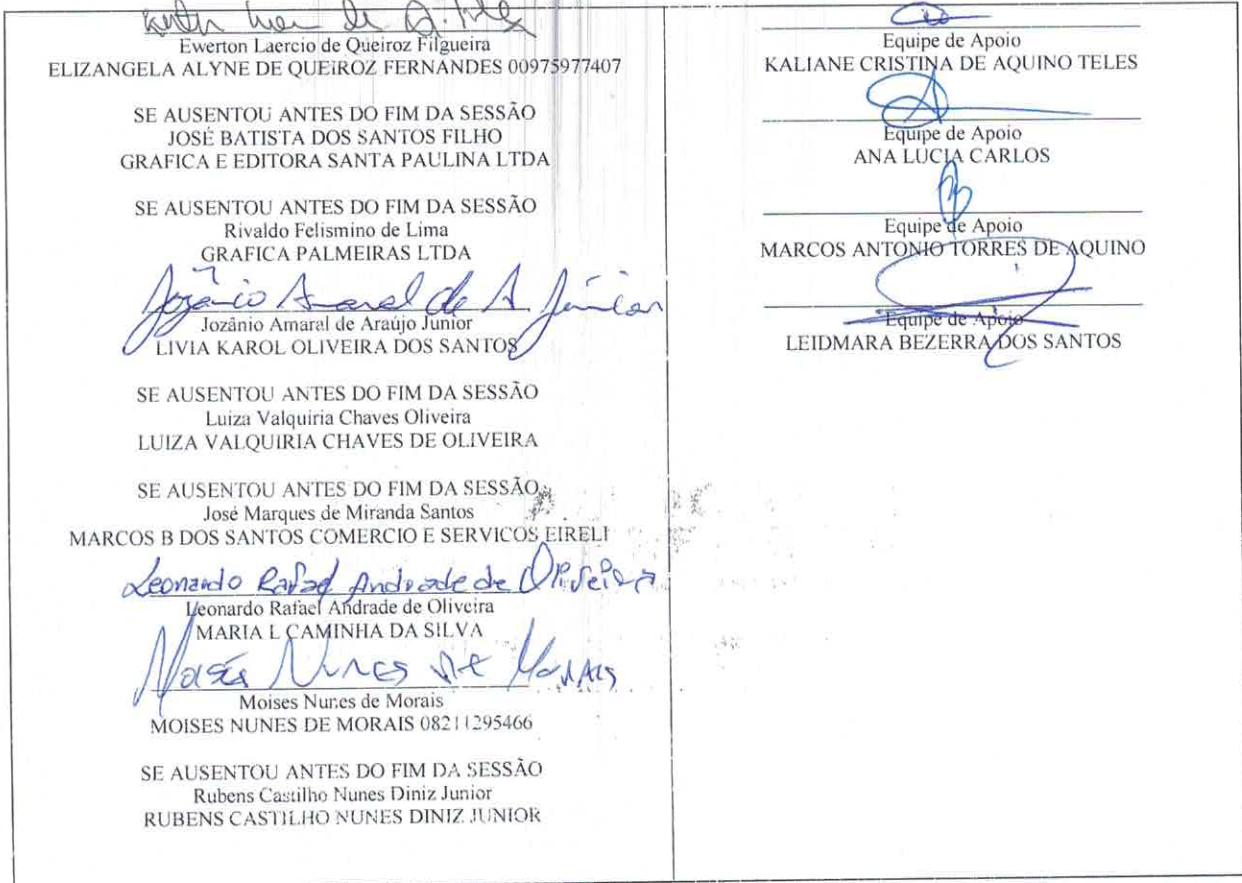 Ewerton Laercio de Queiroz Filgueira
ELIZANGELA ALYNE DE QUEIROZ FERNANDES 00975977407
SE AUSENTOU ANTES DO FIM DA SESSÃO
JOSÉ BATISTA DOS SANTOS FILHO
GRAFICA E EDITORA SANTA PAULINA LTDA
SE AUSENTOU ANTES DO FIM DA SESSÃO
Rivaldo Felismino de Lima
GRAFICA PALMEIRAS LTDA
Jozânio Amaral de A. Júnior
Jozânio Amaral de Araújo Junior
LIVIA KAROL OLIVEIRA DOS SANTOS
SE AUSENTOU ANTES DO FIM DA SESSÃO
Luiza Valquiria Chaves Oliveira
LUIZA VALQUIRIA CHAVES DE OLIVEIRA
SE AUSENTOU ANTES DO FIM DA SESSÃO
José Marques de Miranda Santos
MARCOS B DOS SANTOS COMERCIO E SERVICOS EIRELI
Leonardo Rafael Andrade de Oliveira
Leonardo Rafael Andrade de Oliveira
MARIA L CAMINHA DA SILVA
Moisés Nunes de Morais
Moises Nunes de Morais
MOISES NUNES DE MORAIS 08211295466
SE AUSENTOU ANTES DO FIM DA SESSÃO
Rubens Castilho Nunes Diniz Junior
RUBENS CASTILHO NUNES DINIZ JUNIOR
Equipe de Apoio
KALIANE CRISTINA DE AQUINO TELES
Equipe de Apoio
ANA LUCIA CARLOS
Equipe de Apoio
MARCOS ANTONIO TORRES DE AQUINO
Equipe de Apoio
LEIDMARA BEZERRA DOS SANTOS